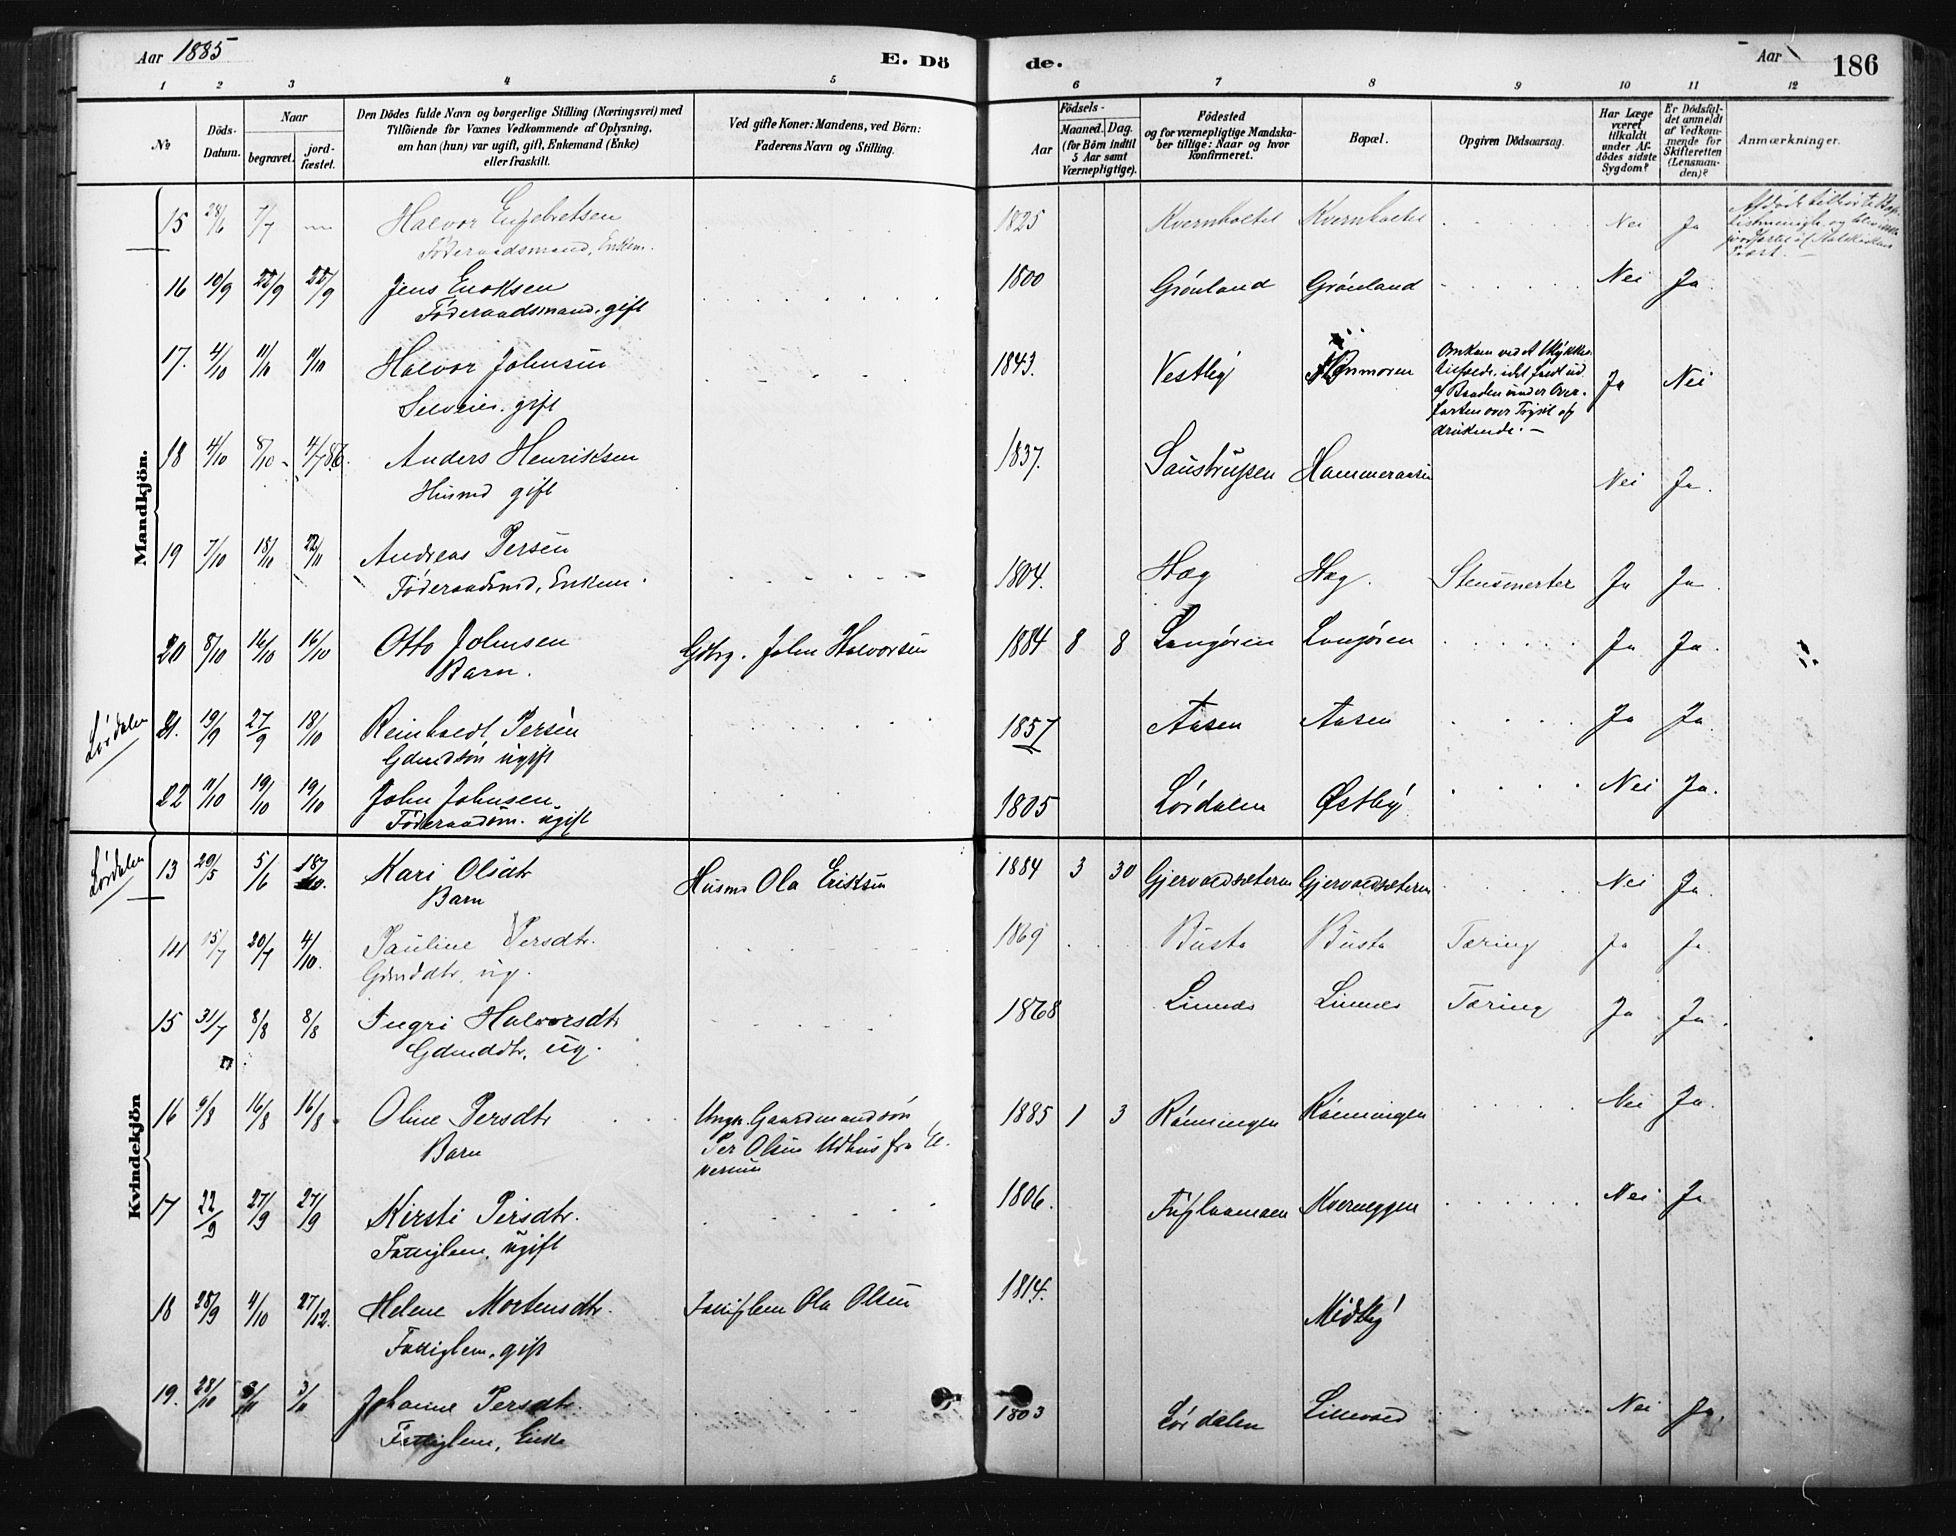 Aar 1885
E. Dö
de.
Aar
186
1 2 3 4 5 6 7 8 9 10 11 12
№
Döds-
Datum.
Naar
begravet.
jord-
fæstet.
Den Dödes fulde Navn og borgerlige Stilling (Næringsvei) med
Tilföiende for Voxnes Vedkommende af Oplysning,
om han (hun) var ugift, gift, Enkemand (Enke)
eller fraskilt.
Ved gifte Koner: Mandens, ved Börn:
Faderens Navn og Stilling.
Födsels-
Aar
Maaned. Dag.
(for Börn indtil
5 Aar samt
Værnepligtige).
Födested
og for værnepligtige Mandska-
ber tillige: Naar og hvor
konfirmeret.
Bopæl.
Opgiven Dödsaarsag.
Har Læge
været
tilkaldt
under Af-
dödes sidste
Sygdom?
Er Dödsfal-
det anmeldt
af Vedkom-
mende for
Skifteretten
(Lensman-
den)?
Anmærkninger.
Mandkjön.
15 28/6 7/7 — Halvor Engebretsen 1825 Kvernholtet Kvernholtet Nei Ja
Föderaadsmand, Enkem.
16 10/9 22/9 22/9 Jens Enoksen 1800 Grönland Grönland Nei Ja.
Föderaadsmand, gift
17. 4/10 11/10 11/10 Halvor Johnsen 1843. Vestby Ja Nei
Selveier. gift
Omkom ved et Ulykkes-
tilfælde, idet faldt ud
af Baaden under Over-
farten over Trysil elv
druknede. —
18 4/10 8/10 4/7 86. Anders Henriksen 1837. Hammeraasen Nei Ja.
Husmd gift
19 7/10 18/10 22/11 Andreas Persen 1804. Hag Hag. Stensmerter Ja Ja.
Föderaadsmd, Enkem.
20 8/10 16/10 16/10 Otto Johnsen Gdbrg. John Halvorsen 1884 8 8 Langören Langören Ja Ja.
Barn.
Lördalen
21. 19/9 27/9 18/10 Reinholdt Persen 1857 Aasen Aasen Ja Ja.
Gdmdsön ugift
22 11/10 19/10 19/10 John Johnsen. 1805 Lördalen Östby Nei Ja.
Föderaadsm. ugift
Kvindekjön
Lördalen
13 20/5 5/6 18/10. Kari Olsdtr Husmd Ola Eriksen 1884 3 30 Gjervoldsæteren Gjervoldsæteren Nei Ja.
Barn
14 15/7 20/7 4/10. Pauline Persdtr. 1869 Busta Busta Tæring Ja Ja.
Gdmddtr. ug.
15 31/7 8/8 8/8 Ingri Halvorsdtr 1868 Linnes Linnes Tæring Ja Ja.
Gdmddtr. ug.
16 9/8 16/8 16/8 Oline Persdtr Ungk. Gaardmandsön 1885 1 3 Rönningen Rönningen Nei Ja.
Barn Per Olsen Udhus fra El-
verum
17 22/9 27/9 27/9 Kirsti Persdtr. 1806. Kverneggen Nei Ja
Fattiglem, ugift
18 28/9 4/10 27/12. Helene Mortensdtr. Fattiglem Ola Olsen 1814. Midtby
Fattiglem, gift
19. 28/10 3/11 3/11 Johanne Persdtr. 1803 Lördalen Lillevold Nei Ja.
Fattiglem, Enke